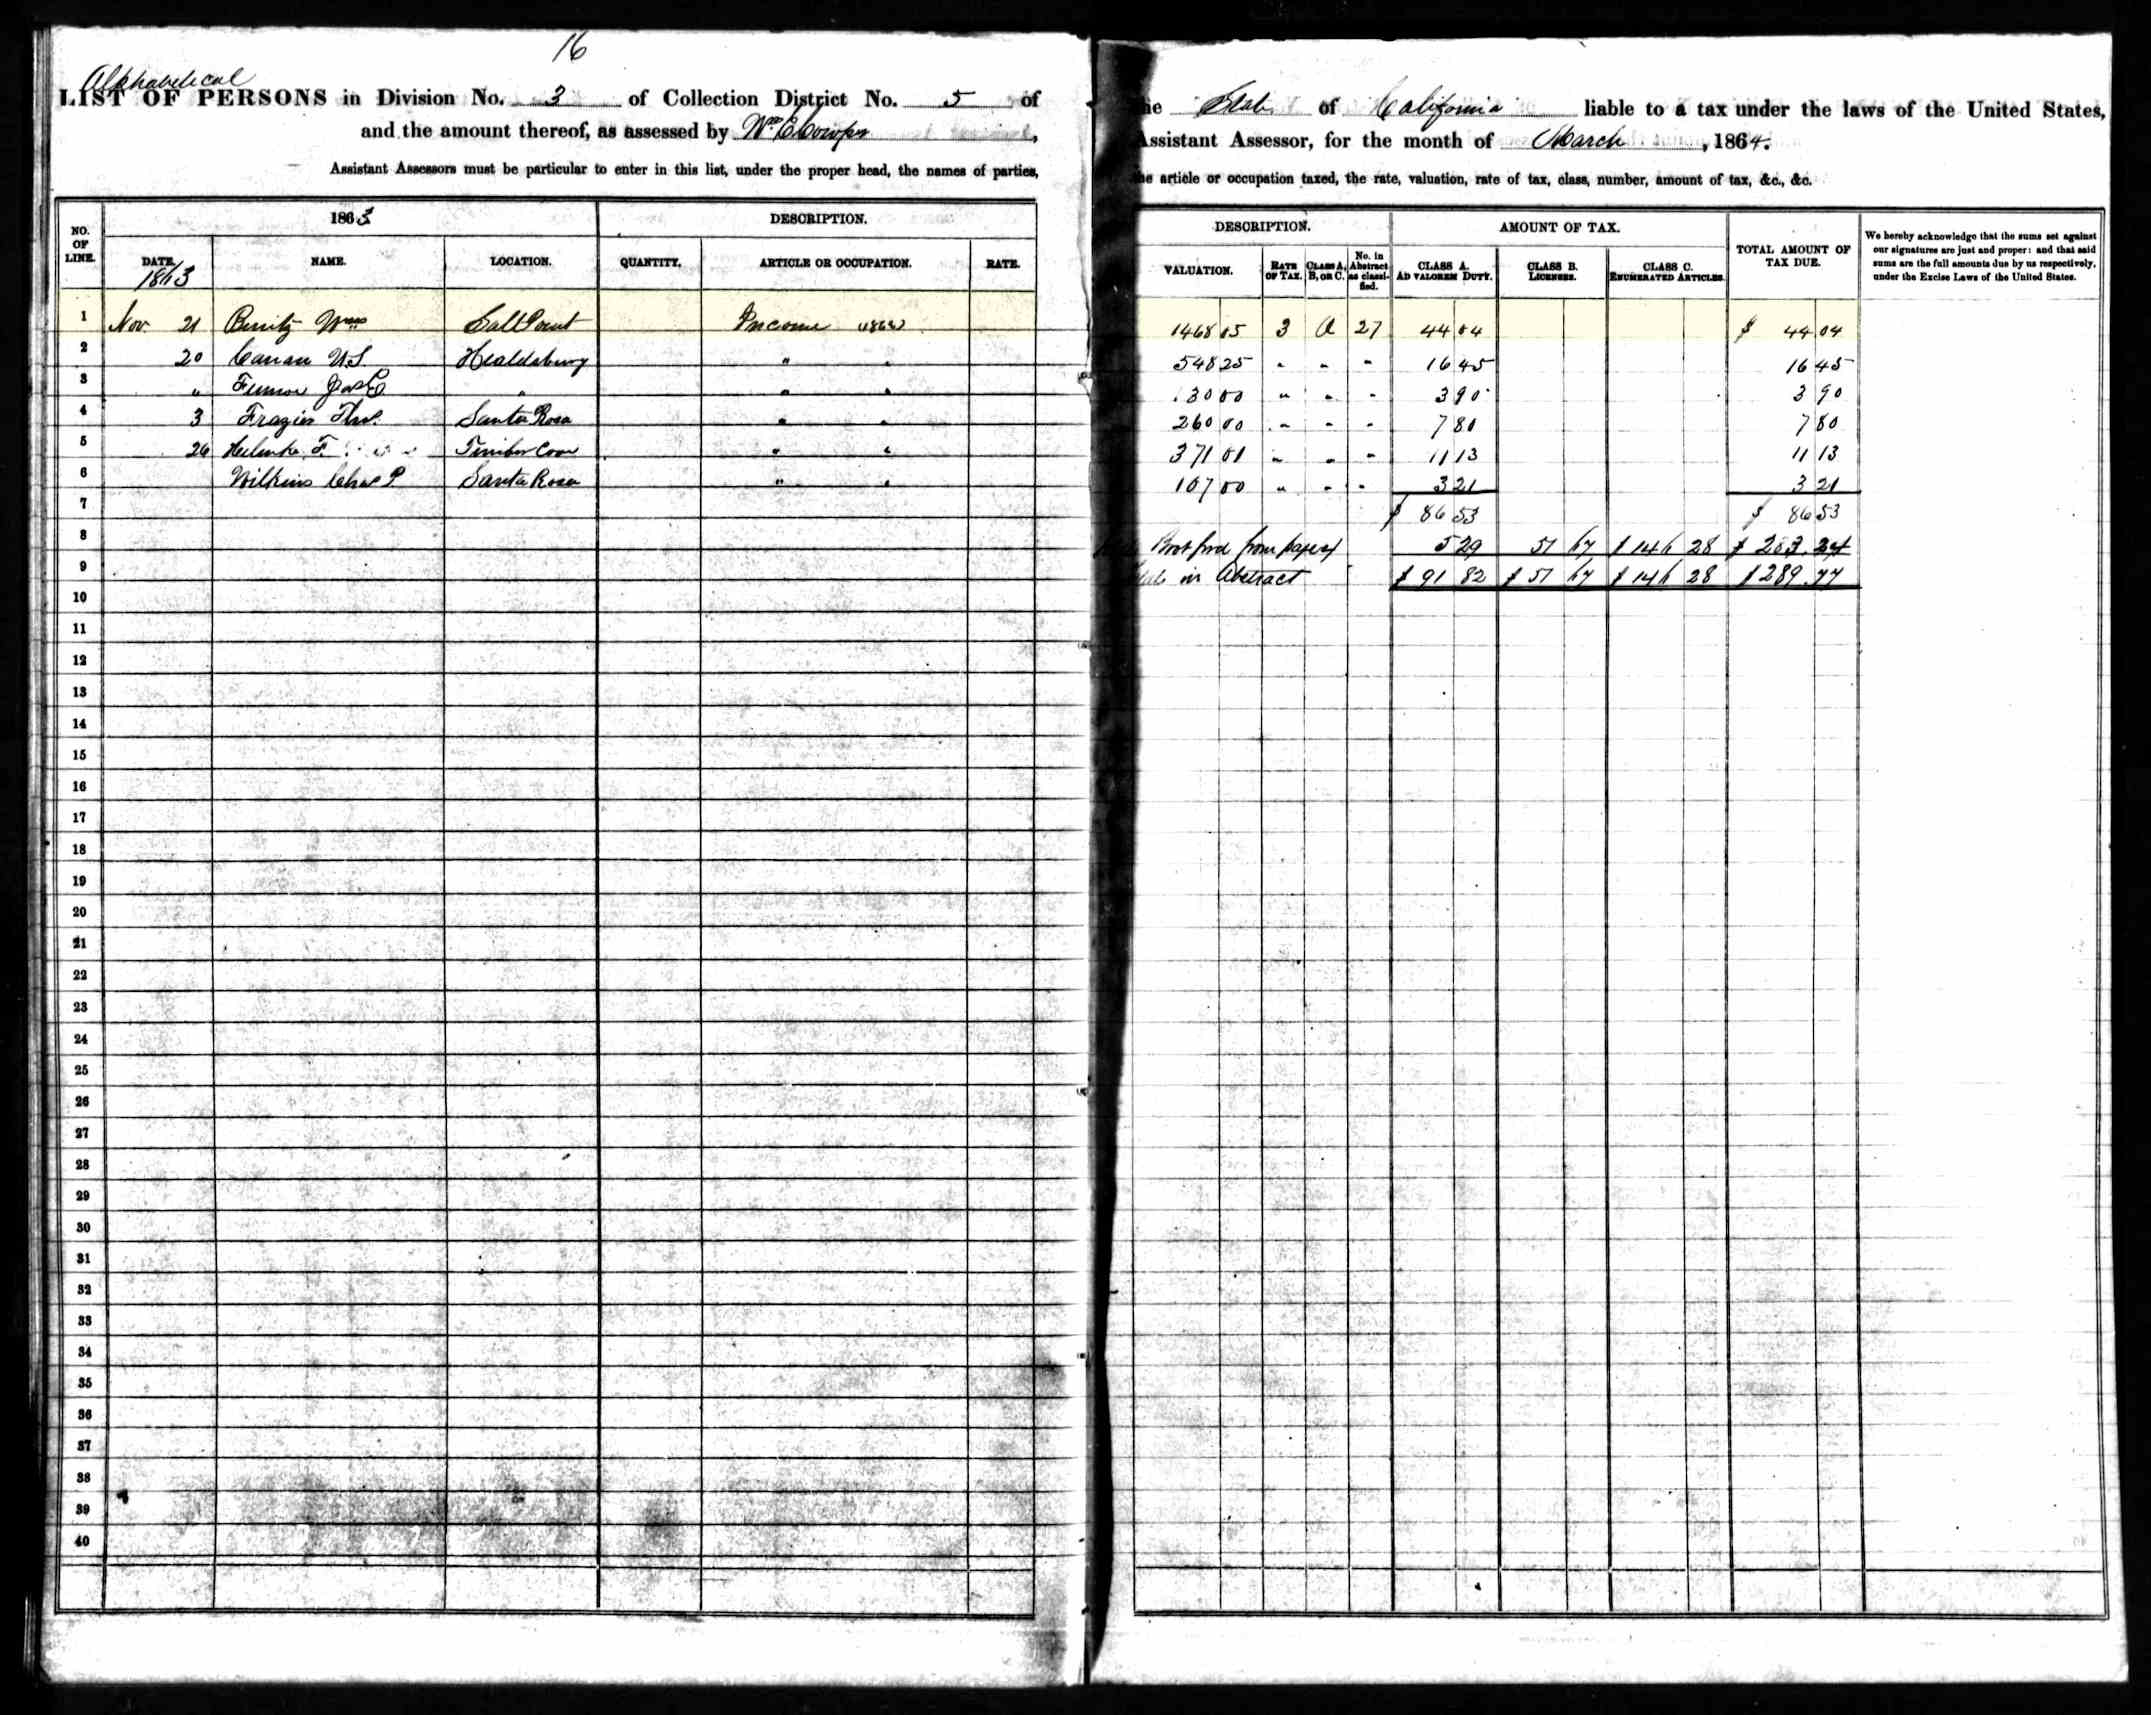 16
Alphabetical
LIST OF PERSONS in Division No. 3 of Collection District No. 5 of the State of California liable to a tax under the laws of the United States,
and the amount thereof, as assessed by Wm Assistant Assessor, for the month of March, 1864.
Assistant Assessors must be particular to enter in this list, under the proper head, the names of parties, the article or occupation taxed, the rate, valuation, rate of tax, class, number, amount of tax, &c., &c.
NO. OF LINE. 1863 DESCRIPTION. DESCRIPTION. AMOUNT OF TAX. TOTAL AMOUNT OF TAX DUE.
DATE. NAME. LOCATION. QUANTITY. ARTICLE OR OCCUPATION. RATE. VALUATION. RATE OF TAX. CLASS A, B, OR C. No. in Abstract as classified. CLASS A. AD VALOREM DUTY. CLASS B. LICENSES. CLASS C. ENUMERATED ARTICLES.
We hereby acknowledge that the sums set against our signatures are just and proper: and that said sums are the full amounts due by us respectively, under the Excise Laws of the United States.
1863
1 Nov. 21 Benitz Wm Salt Point Income (1862) 1468 05 3 A 27 44 04 $ 44 04
2 20 Canan W.S Healdsburg " " 548 25 " " " 16 45 16 45
3 " Jas " " " 130 00 " " " 3 90 3 90
4 3 Frazier Thos. Santa Rosa " " 260 00 " " " 7 80 7 80
5 26 Helmke F. Timber Cove " " 371 01 " " " 11 13 11 13
6 Wilkins Chas P Santa Rosa " " 107 00 " " " 3 21 3 21
7 $ 86 53 $ 86 53
8 Brot ford from page 5 29 51 67 $ 146 28 $ 203.24
9 in Abstract $ 91 82 $ 51 67 $ 146 28 $ 289.77
10
11
12
13
14
15
16
17
18
19
20
21
22
23
24
25
26
27
28
29
30
31
32
33
34
35
36
37
38
39
40